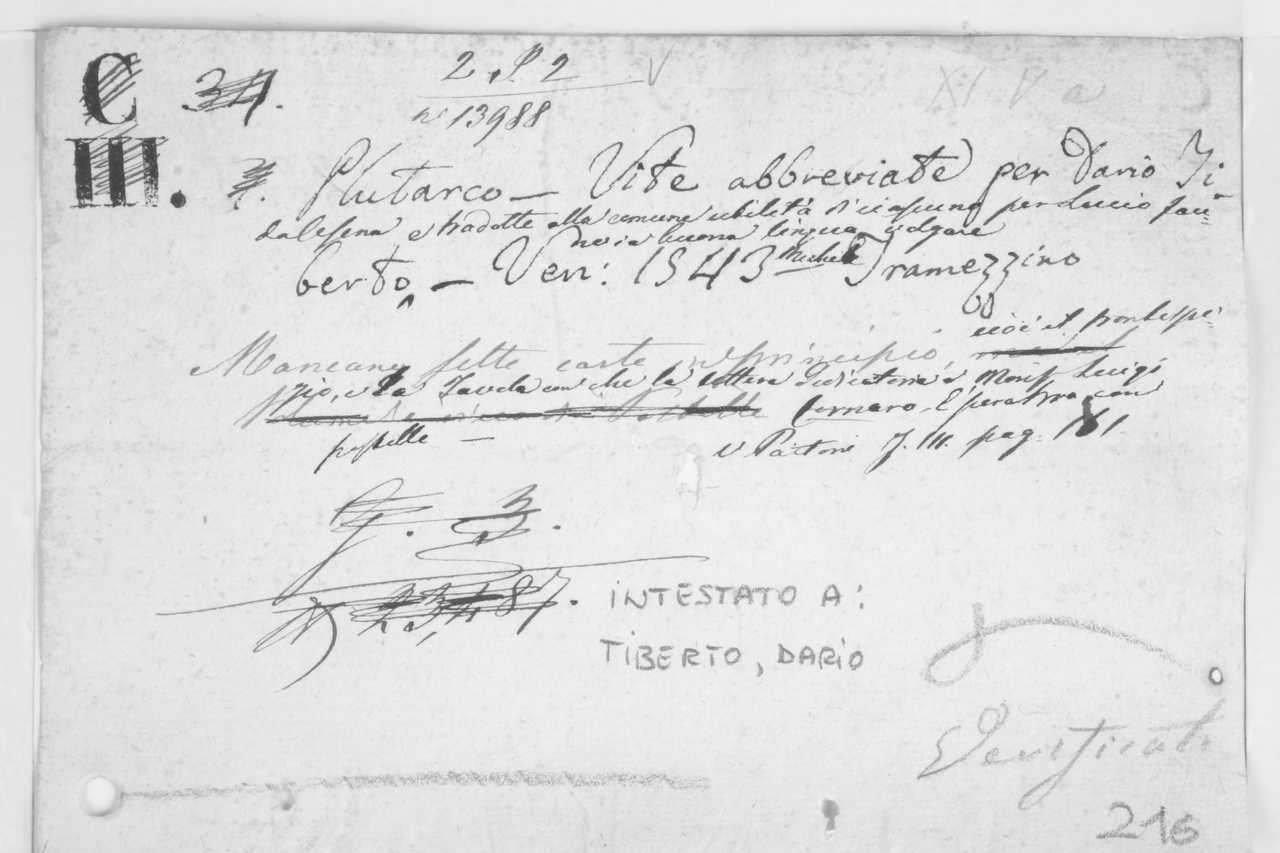 C 34.
2. P. 2 V
XI V a
n° 13988
III.
Plutarco – Vite abbreviate per Dario Ti-
da Cesena e tradotte alla comune utilità di ciascuno per Lucio Fau-
no in buona lingua volgare
berto – Ven: 1543 Michele Tramezzino
Mancano sette carte in principio, cioè il frontespi-
zio, e la Tavola con che la lettera dedicatoria a Luigi
Cornaro. È peraltro con
postille –
v Paitoni T. III. pag. 181.
T. 3.
N 23,487.
INTESTATO A:
TIBERTO, DARIO
Verificato
216